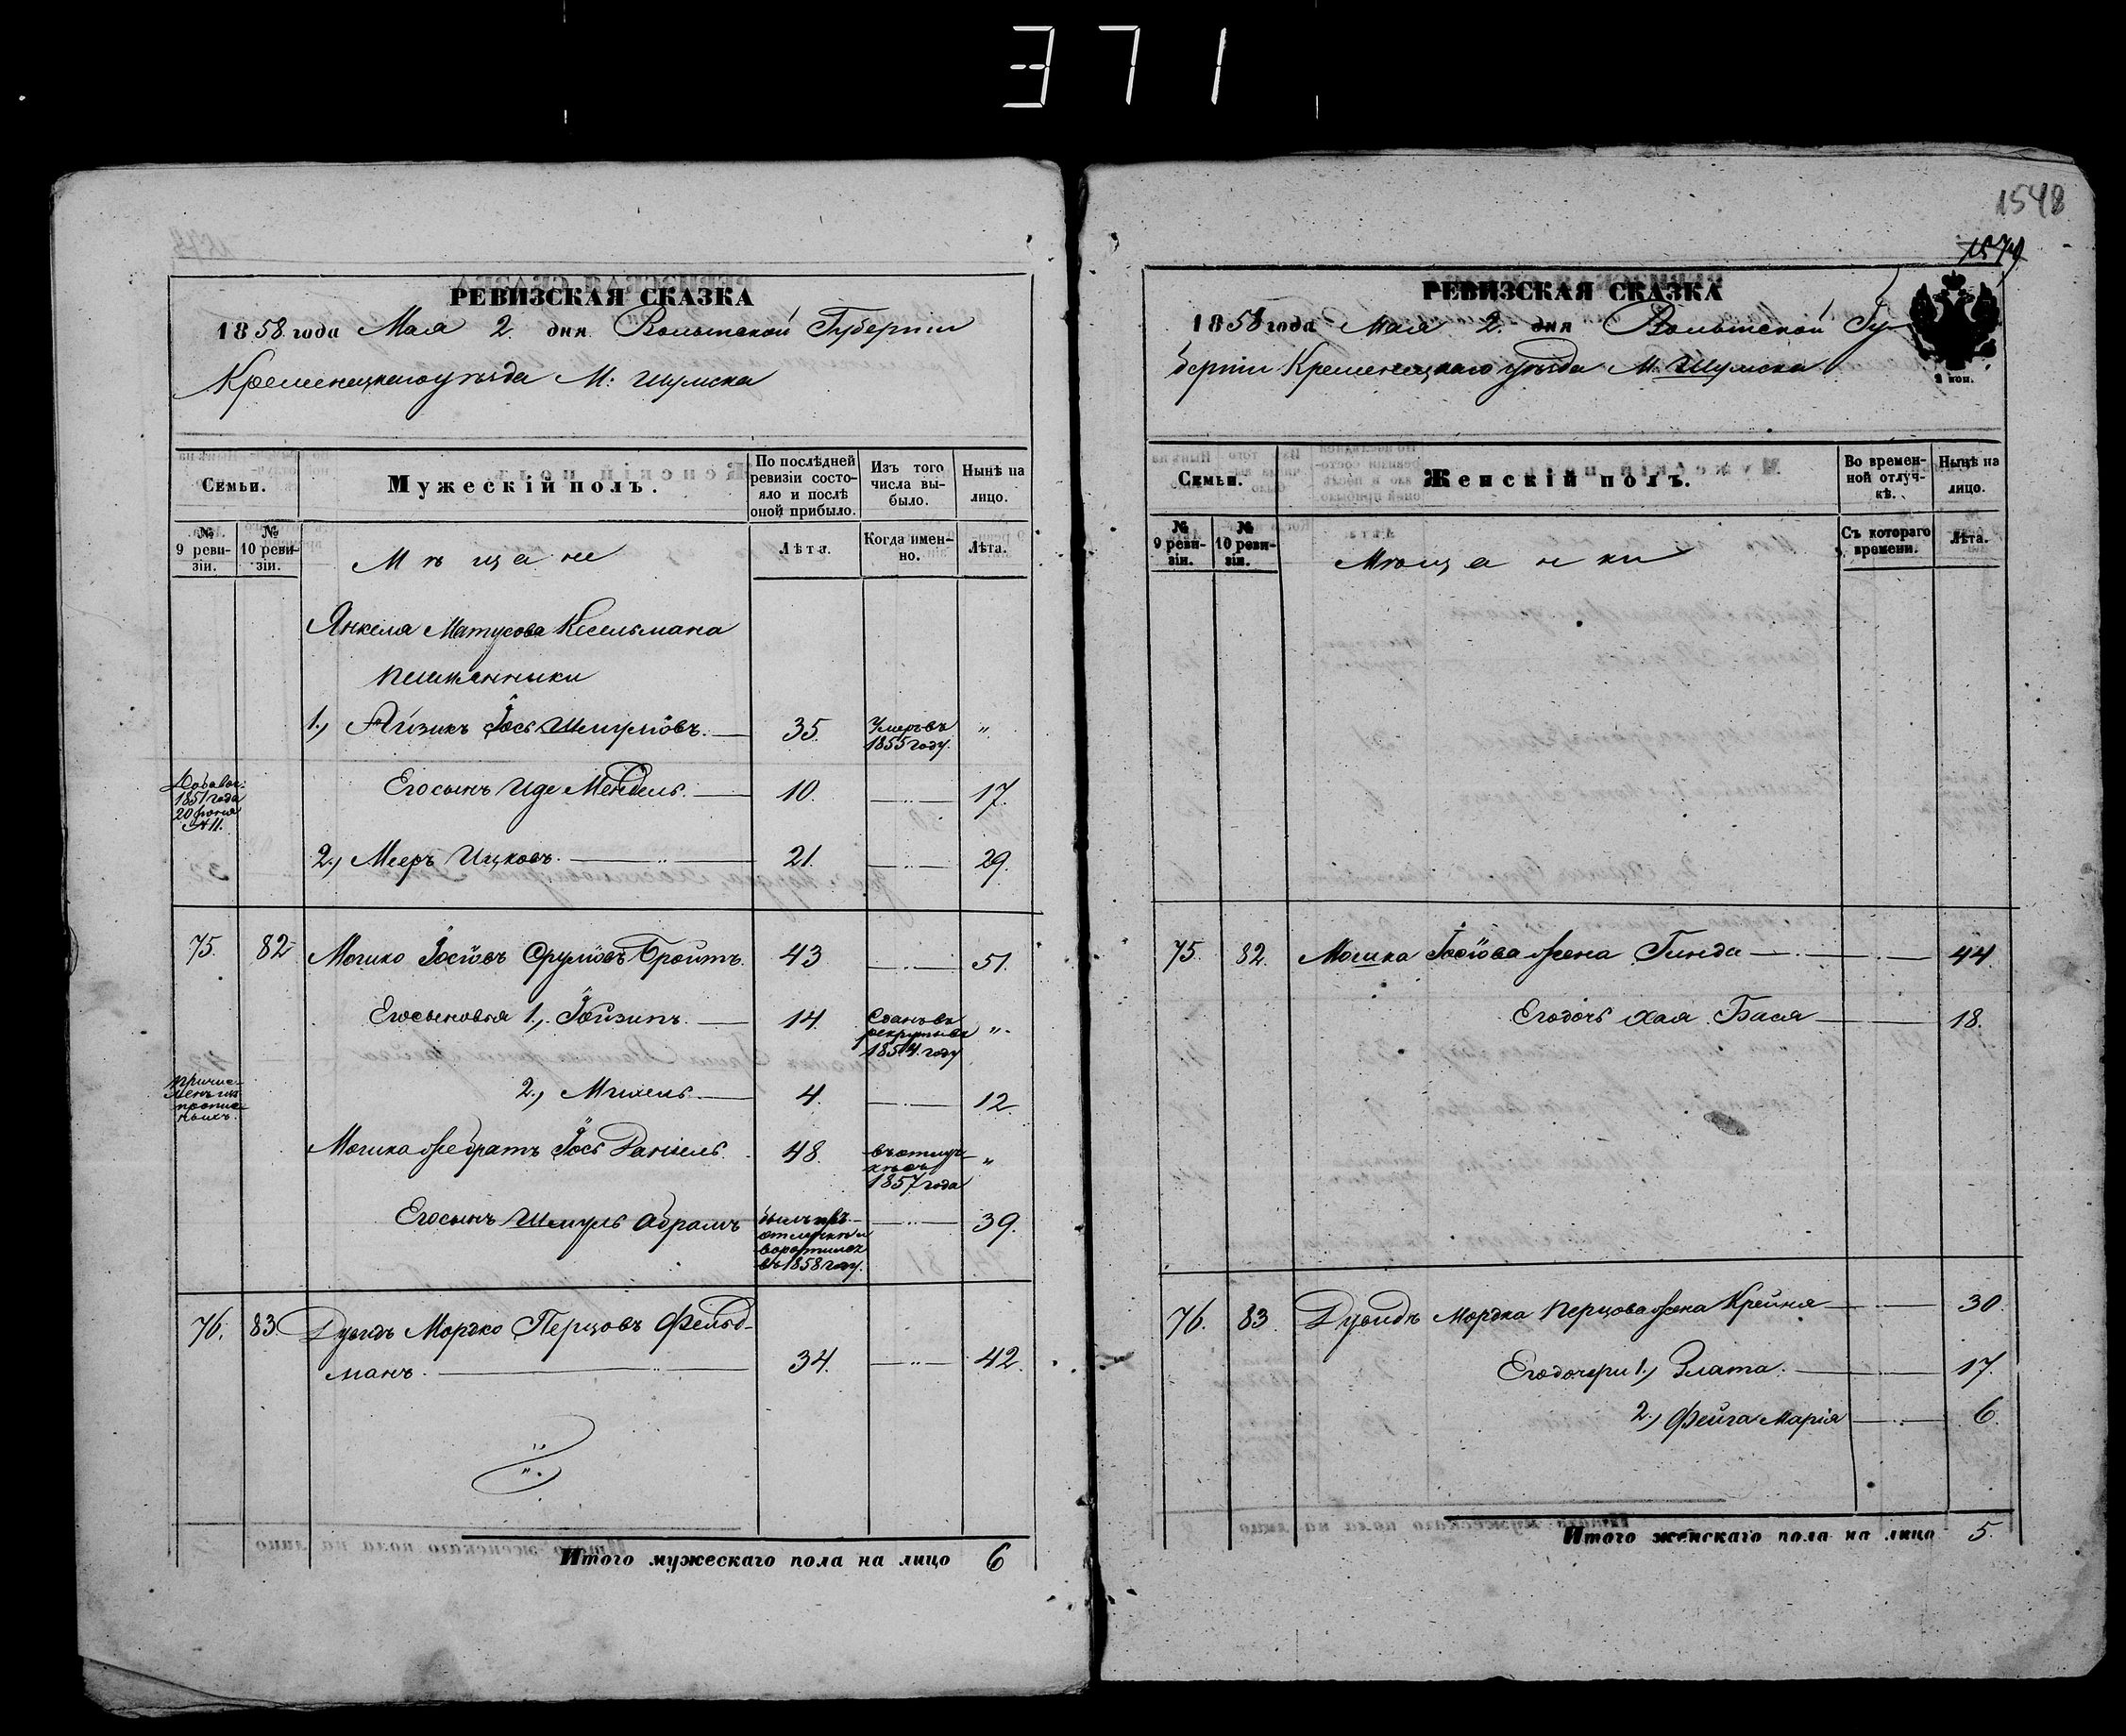 371
1548
1574
РЕВИЗСКАЯ СКАЗКА
1858 года Мая 2 дня Волынской Губерніи
Кременецкаго уѣзда М: Шумска
Семьи.
Мужескій полъ.
По послѣдней ревизіи состояло и послѣ оной прибыло.
Изъ того числа выбыло.
Нынѣ на лицо.
№ 9 ревизіи.
№ 10 ревизіи.
Мѣщане
Лѣта.
Когда именно.
Лѣта.
Янкеля Матусова Кесельмана
племянники
1., Айзикъ Іось Шмулiовъ. 35. Умеръ въ 1855 году. "
Добавоч. 1851 года 20 Іюня №11.
Его сынъ Иде Мендель. 10. 17.
2., Мееръ Ицковъ. 21. 29.
75. 82 Мошко Іосiовъ Сруліовъ Бройтъ. 43 51.
Его сыновья 1., Іойзипъ. 14. Сданъ въ рекруты въ 1854 году "
2., Михель 4. 12.
Причисленъ изъ прописныхъ.
Мошка же братъ Іось Даніель 48. въ отлучкѣ съ 1857 года "
Его сынъ Шмуль Абрамъ былъ въ отлучкѣ и воротился въ 1858 году. 39.
76. 83. Дувидъ Мордко Перцовъ Фельд-
манъ. 34. 42.
Итого мужескаго пола на лицо 6
РЕВИЗСКАЯ СКАЗКА
1858 года Мая 2. дня Волынской Гу-
берніи Кременецкаго уѣзда М. Шумска
2 коп.
Семьи.
Женскій полъ.
Во временной отлучкѣ.
Нынѣ на лицо.
№ 9 ревизіи.
№ 10 ревизіи.
Мѣщанки
Съ котораго времени.
Лѣта.
75. 82. Мошка Іосіова жена Гинда 44.
Его дочь Хая Бася 18.
76. 83. Дувидъ Мордка Перцова жена Крейня 30.
Его дочери 1., Злата. 17.
2., Фейга Марія 6.
Итого женскаго пола на лицо 5.